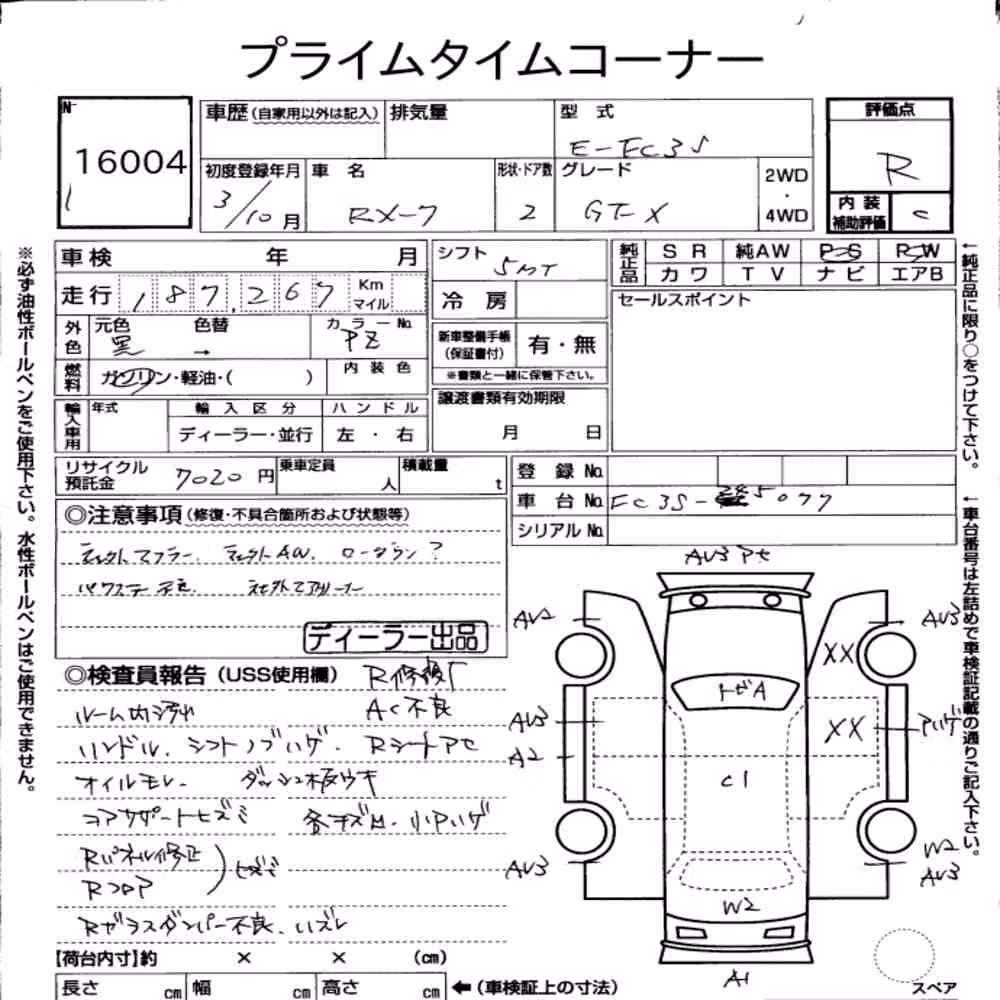 プライムタイムコーナー
N-
16004
車歴(自家用以外は記入)
排気量
型 式
E-FC3S
評価点
R
初度登録年月
3/10月
車 名
RX-7
形状・ドア数
2
グレード
GT-X
2WD
・
4WD
内 装
補助評価
C
車検 年 月
シフト
5MT
純正品
S R 純AW P・S P・W
カワ T V ナビ エアB
走行 187,267 Km マイル
冷 房
セールスポイント
外色
元色 色替 カラーNo.
黒 → PZ
新車整備手帳
(保証書付)
有・無
※書類と一緒に保管下さい。
燃料
ガソリン・軽油・( )
内 装 色
輸入車用
年式
輸 入 区 分
ハ ン ド ル
ディーラー・並行
左 ・ 右
譲渡書類有効期限
月 日
リサイクル
預託金
7020 円
乗車定員
人
積載量
t
登 録 No.
車 台 No. FC3S- 5077
シリアル No.
◎注意事項(修復・不具合箇所および状態等)
社外マフラー. 社外AW. ローダウン?
パワステ 不良 社外エアクリーナー
ディーラー出品
◎検査員報告(USS使用欄)
R修復 
AC不良
ルーム内汚れ
ハンドル. シフトノブハゲ. Rシートアセ
オイルモレ. ダッシュ板ウキ
コアサポートヒズミ 各キズ凹. 小アハゲ
Rパネル修正
Rフロア
ヒズミ
Rガラスダンパー不良. ハズレ
【荷台内寸】約 × × (cm)
長さ cm 幅 cm 高さ cm
←(車検証上の寸法)
AU3 アセ
AU2
AU3
XX
トビA
AU3
XX
アハゲ
A2
C1
AU3
W2
AU3
W2
A1
スペア
※必ず油性ボールペンをご使用下さい。水性ボールペンはご使用できません。
←純正品に限り○をつけて下さい。
←車台番号は左詰めで車検証記載の通りご記入下さい。